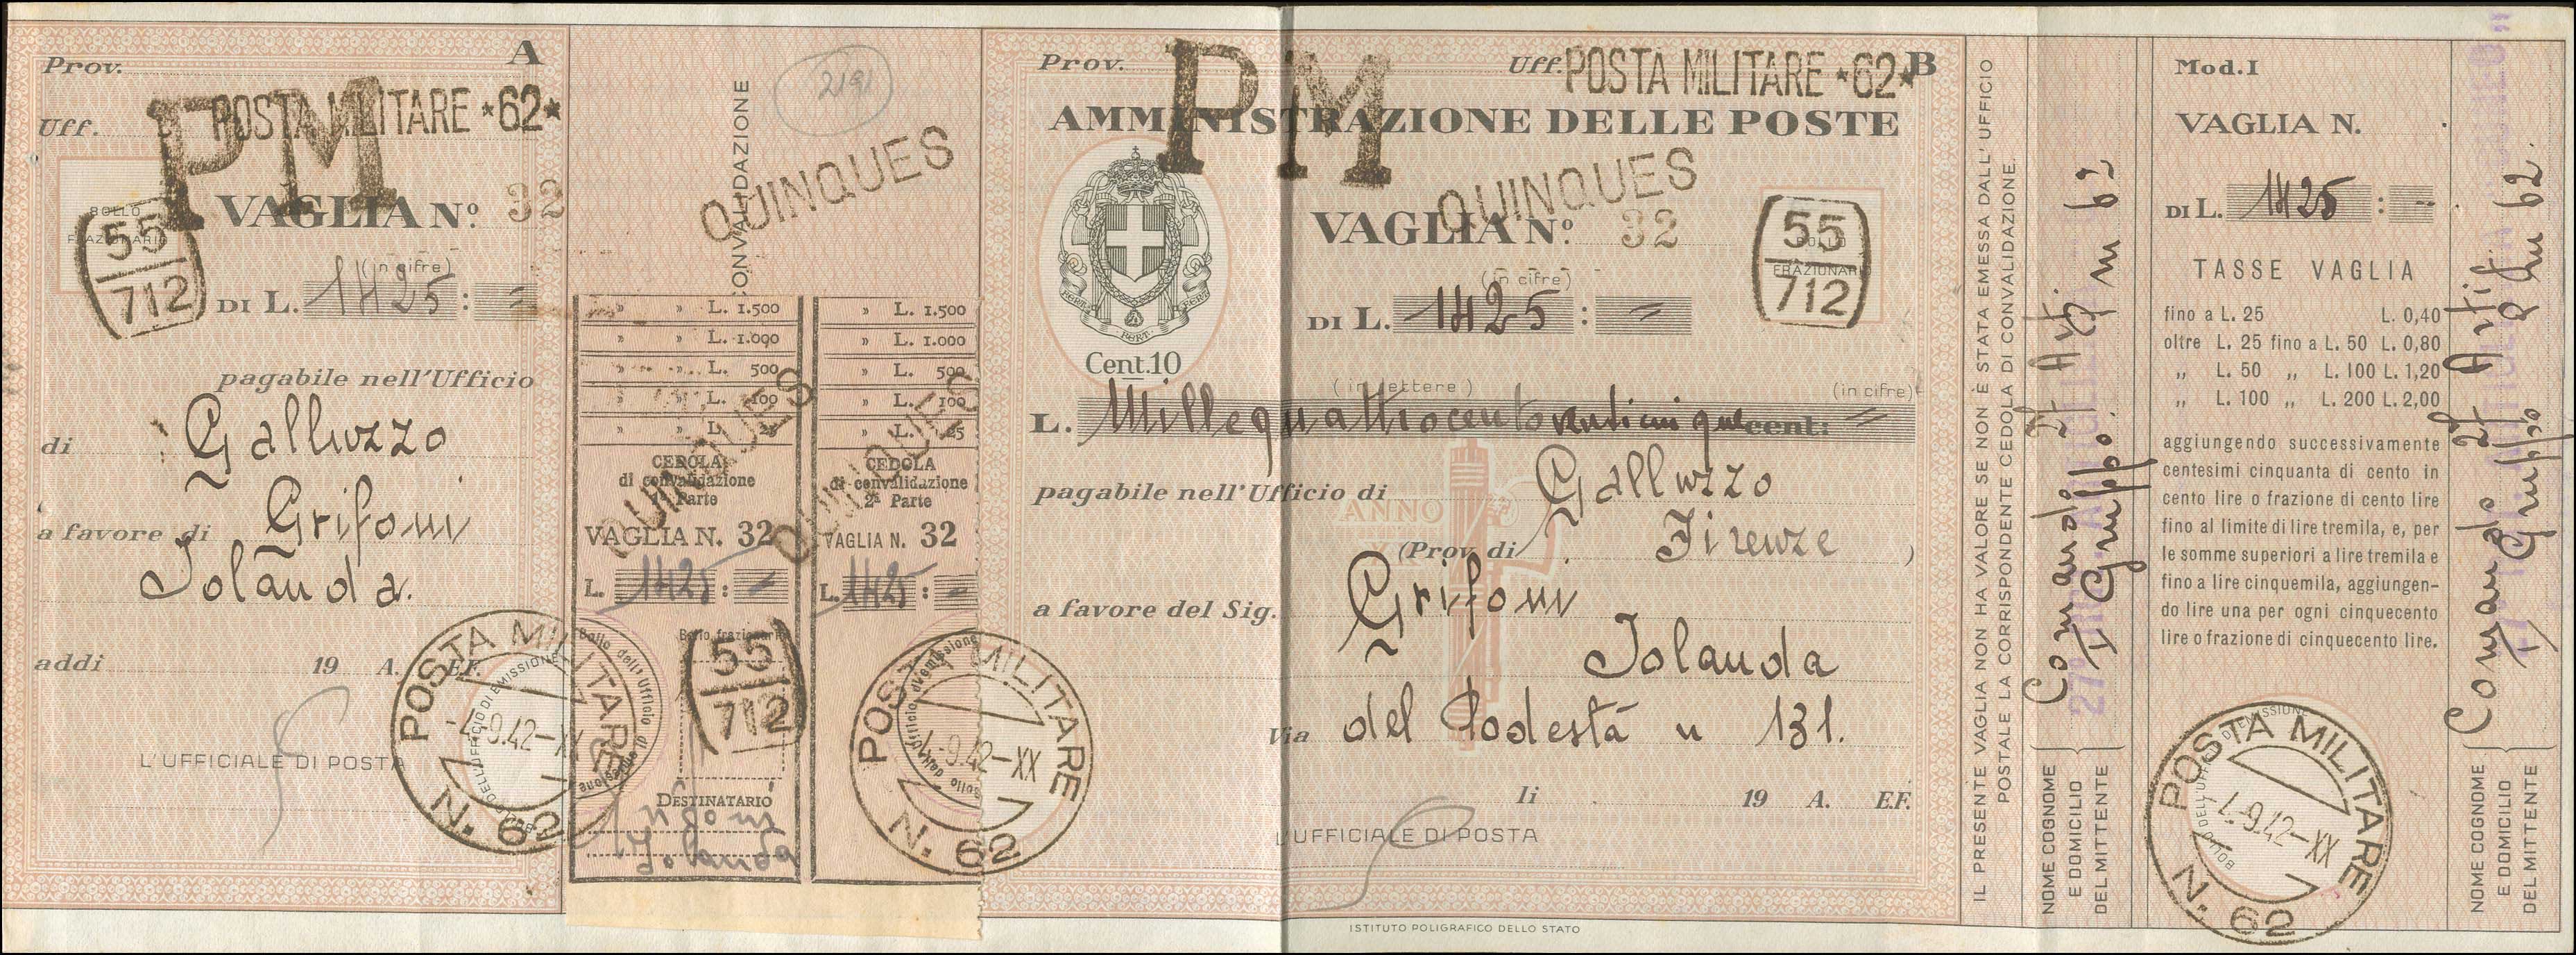 Prov.
A
Uff.
POSTA MILITARE *62*
PM
BOLLO
FRAZIONARIO
55
712
VAGLIA Nº. 32
(in cifre)
DI L. 1425 : =
pagabile nell'Ufficio
di Galluzzo
a favore di Grifoni
Iolanda.
addì 19 A. E.F.
L'UFFICIALE DI POSTA
BOLLO DELL'UFFICIO DI EMISSIONE
POSTA MILITARE
-4.-9.42-XX
N. 62
2191
CONVALIDAZIONE
QUINQUES
» » L. 1.500
» » L. 1.000
» » L. 500
» » L. 100
» » L. 25
QUINQUES
CEDOLA
di convalidazione
1ª Parte
VAGLIA N. 32
L. 1425 : =
Bollo dell'Ufficio di emissione
Bollo frazionario
55
712
DESTINATARIO
Iolanda
» L. 1.500
» L. 1.000
» L. 500
» L. 100
» L. 25
QUINQUES
CEDOLA
di convalidazione
2ª Parte
VAGLIA N. 32
L. 1425 : =
Bollo dell'Ufficio d'emissione
POSTA MILITARE
-4.-9.42-XX
N. 62
Prov.
Uff. POSTA MILITARE *62*
B
PM
AMMINISTRAZIONE DELLE POSTE
QUINQUES
VAGLIA Nº. 32
FERT
Cent.10
BOLLO
FRAZIONARIO
55
712
(in cifre)
DI L. 1425 : =
(in lettere)
(in cifre)
L. Millequattrocentoventicinque cent: =
pagabile nell'Ufficio di Galluzzo
ANNO
(Prov. di Firenze )
a favore del Sig. Grifoni
Iolanda
Via del Podestà n 131.
li 19 A. E.F.
L'UFFICIALE DI POSTA
ISTITUTO POLIGRAFICO DELLO STATO
IL PRESENTE VAGLIA NON HA VALORE SE NON È STATA EMESSA DALL'UFFICIO
POSTALE LA CORRISPONDENTE CEDOLA DI CONVALIDAZIONE.
NOME COGNOME
E DOMICILIO
DEL MITTENTE
Comando 27 Art.
I Gruppo.
m 62
Mod.I
VAGLIA N.
DI L. 1425 : =
TASSE VAGLIA
fino a L. 25 L. 0,40
oltre L. 25 fino a L. 50 L. 0,80
„ L. 50 „ L. 100 L. 1,20
„ L. 100 „ L. 200 L. 2,00
aggiungendo successivamente
centesimi cinquanta di cento in
cento lire o frazione di cento lire
fino al limite di lire tremila, e, per
le somme superiori a lire tremila e
fino a lire cinquemila, aggiungen-
do lire una per ogni cinquecento
lire o frazione di cinquecento lire.
POSTA MILITARE
-4.-9.42-XX
N. 62
NOME COGNOME
E DOMICILIO
DEL MITTENTE
Comando 27 Art.
I Gruppo
62.